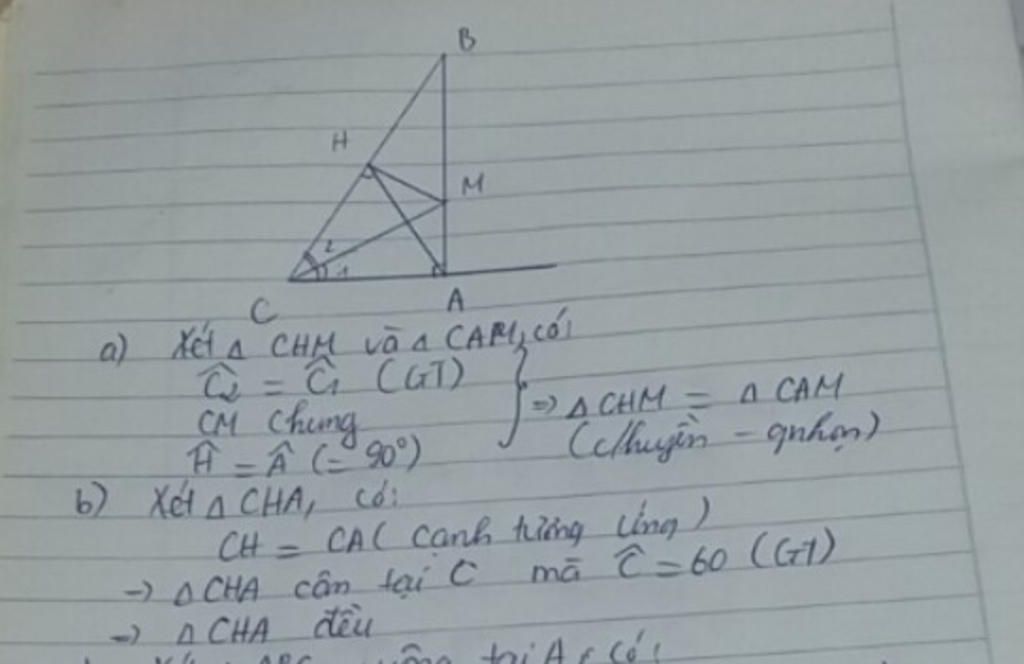 B
H
M
2
1
C
A
a) Xét Δ CHM và Δ CAM, có:
Ĉ₂ = Ĉ₁ (GT)
CM chung
Ĥ = Â (= 90°)
} => Δ CHM = Δ CAM
(c/huyền - gnhọn)
b) Xét Δ CHA, có:
CH = CA ( cạnh tương ứng )
-> Δ CHA cân tại C mà Ĉ = 60 (GT)
-> Δ CHA đều
tại A, có: